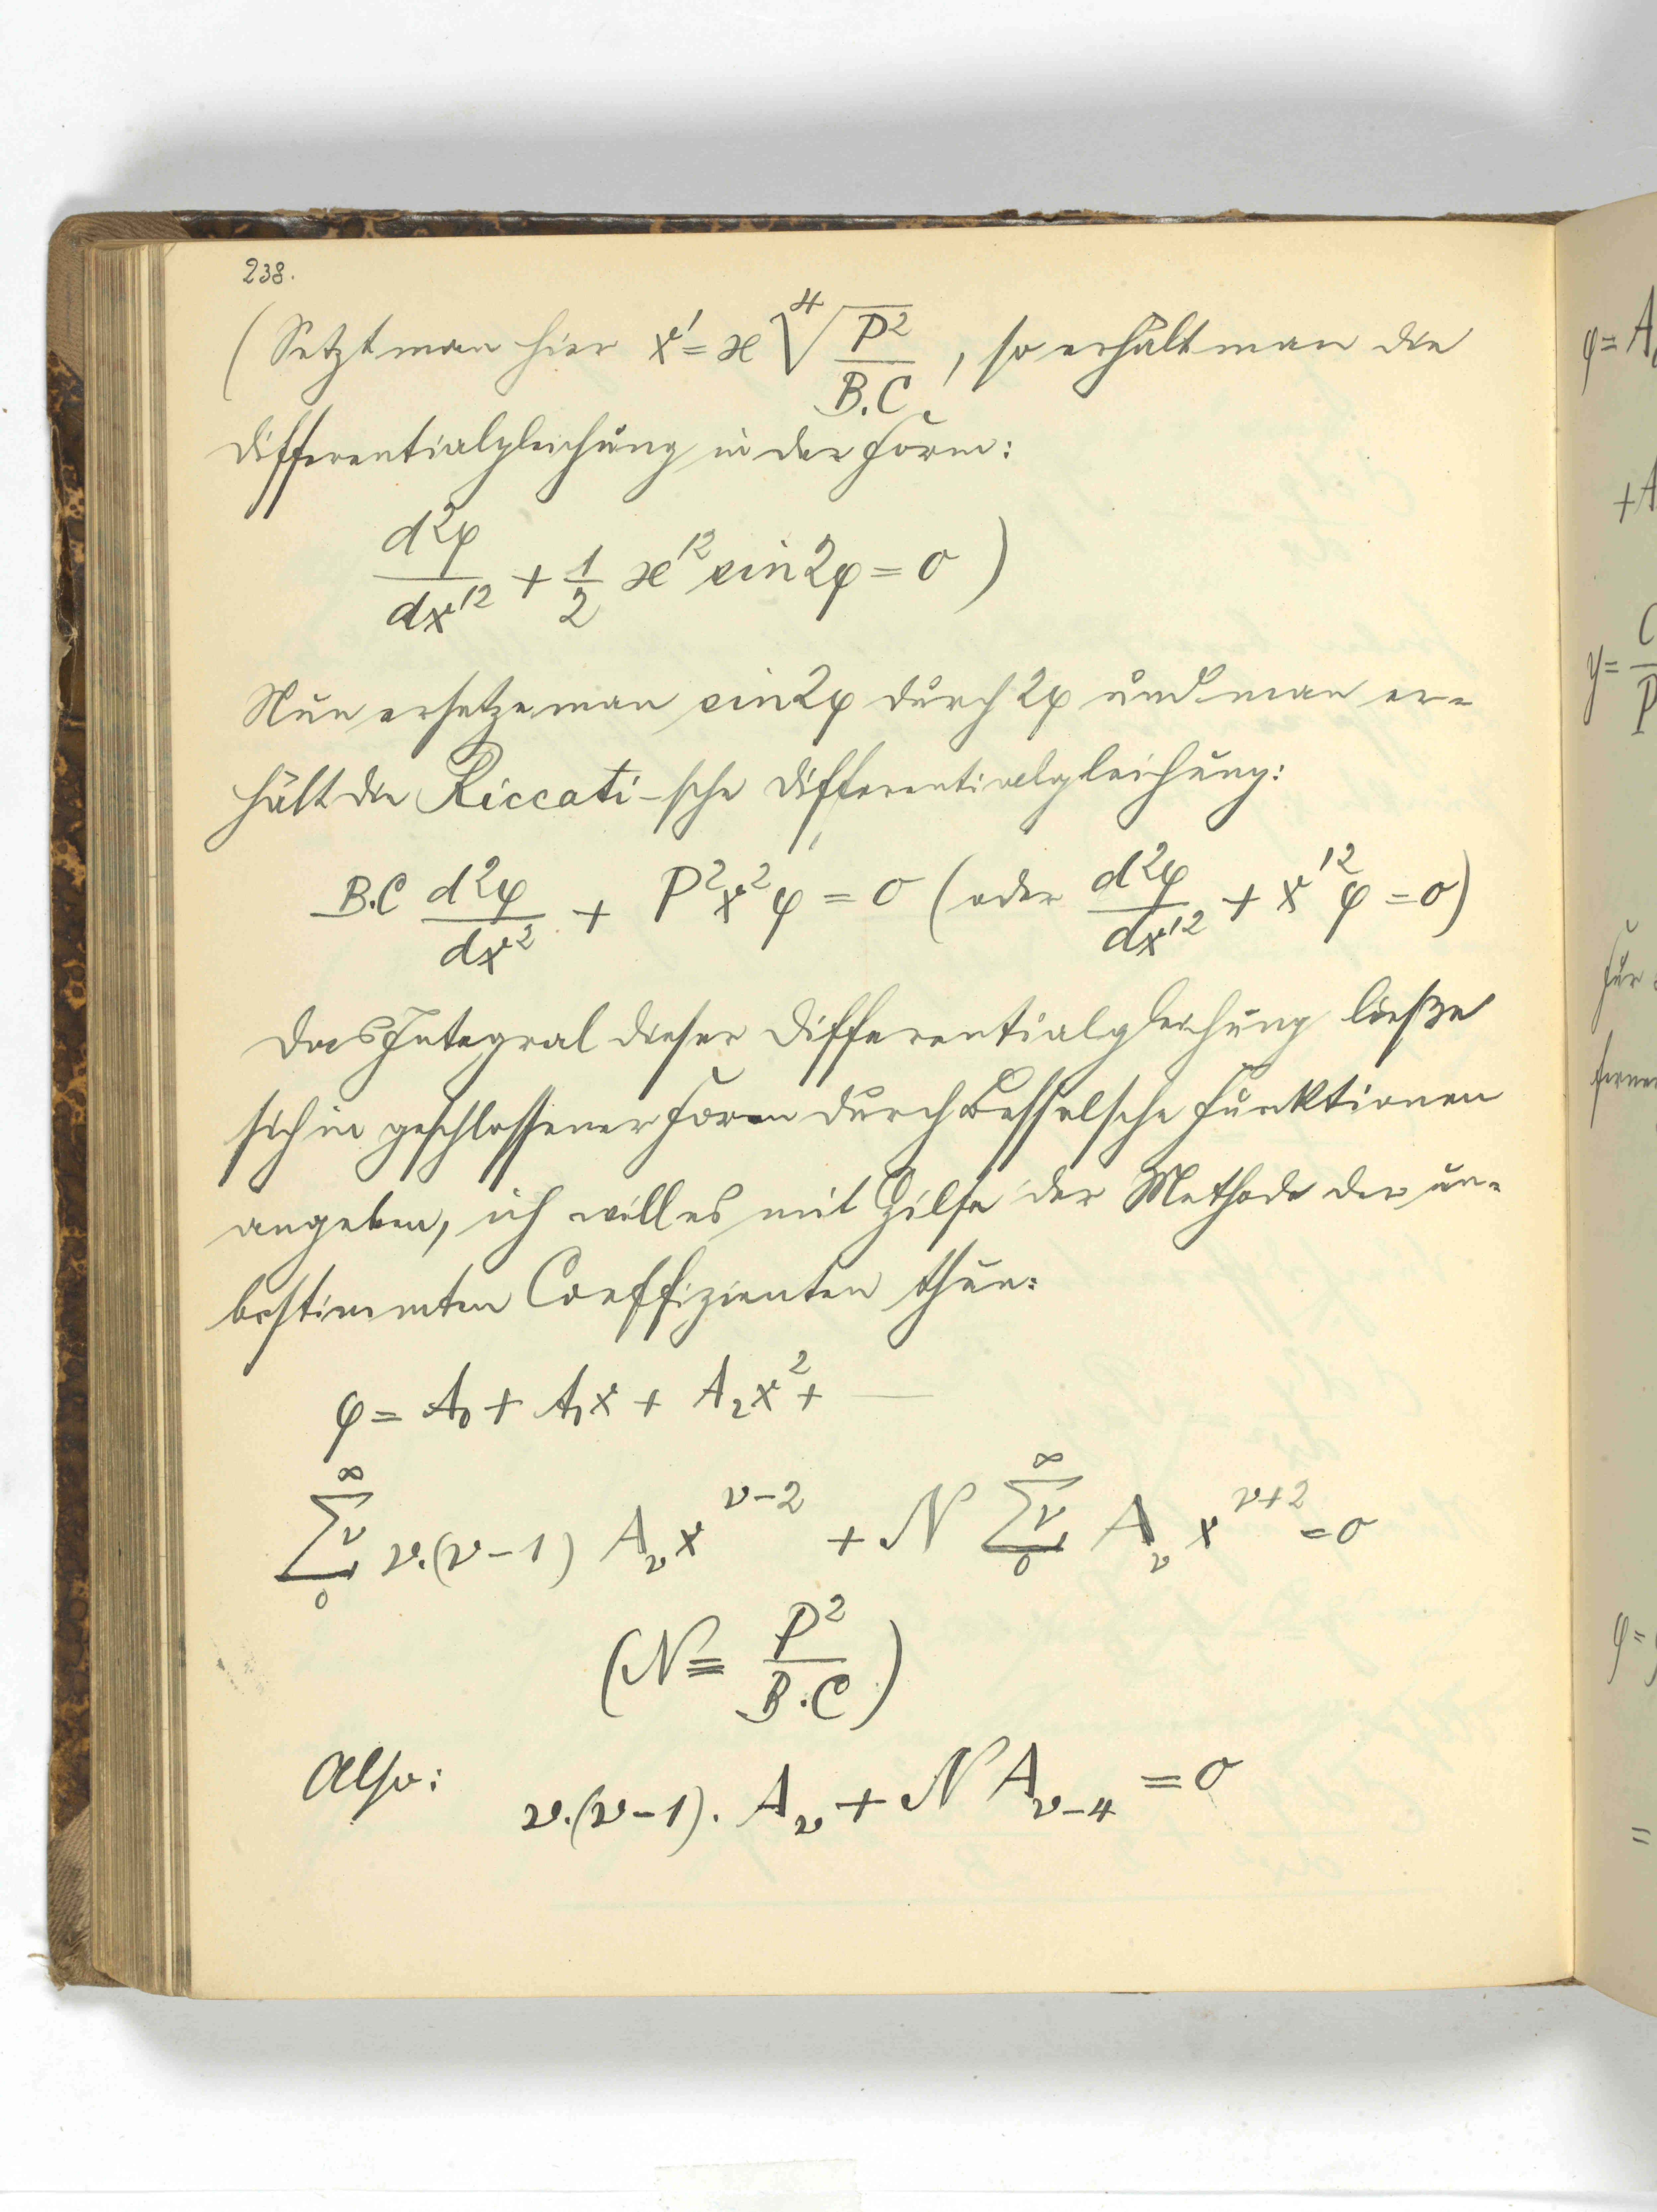 238.
(Setzt man hier x' = x ∜(P²/B.C), so erhält man die
Differentialgleichung in der Form:
d²φ/dx'² + 1/2 x'² sin2φ = 0)
Nun ersetze man sin2φ durch 2φ und man er-
hält die Riccati-sche Differentialgleichung:
B.C d²φ/dx² + P²x²φ = 0 (oder d²φ/dx'² + x'²φ = 0)
Das Integral dieser Differentialgleichung ließe
sich in geschlossener Form durch Besselsche Funktionen
angeben, ich will es mit Hilfe der Methode der un-
bestimmten Coeffizienten thun:
φ = A₀ + A₁x + A₂x² + —
∞Σν0 ν.(ν-1) Aνx^(ν-2) + N ∞Σν0 Aν x^(ν+2) = 0
(N ≡ P²/B.C)
Also: ν.(ν-1). Aν + N Aν-4 = 0
φ = A
+A
y = C/P
Für
ferner
φ =
=